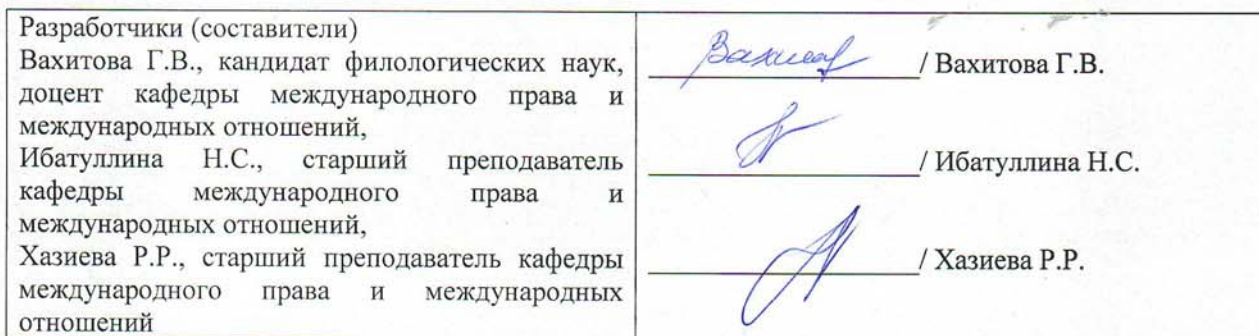 Разработчики (составители)
Вахитова Г.В., кандидат филологических наук,
доцент кафедры международного права и
международных отношений,
Ибатуллина Н.С., старший преподаватель
кафедры международного права и
международных отношений,
Хазиева Р.Р., старший преподаватель кафедры
международного права и международных
отношений
/ Вахитова Г.В.
/ Ибатуллина Н.С.
/ Хазиева Р.Р.